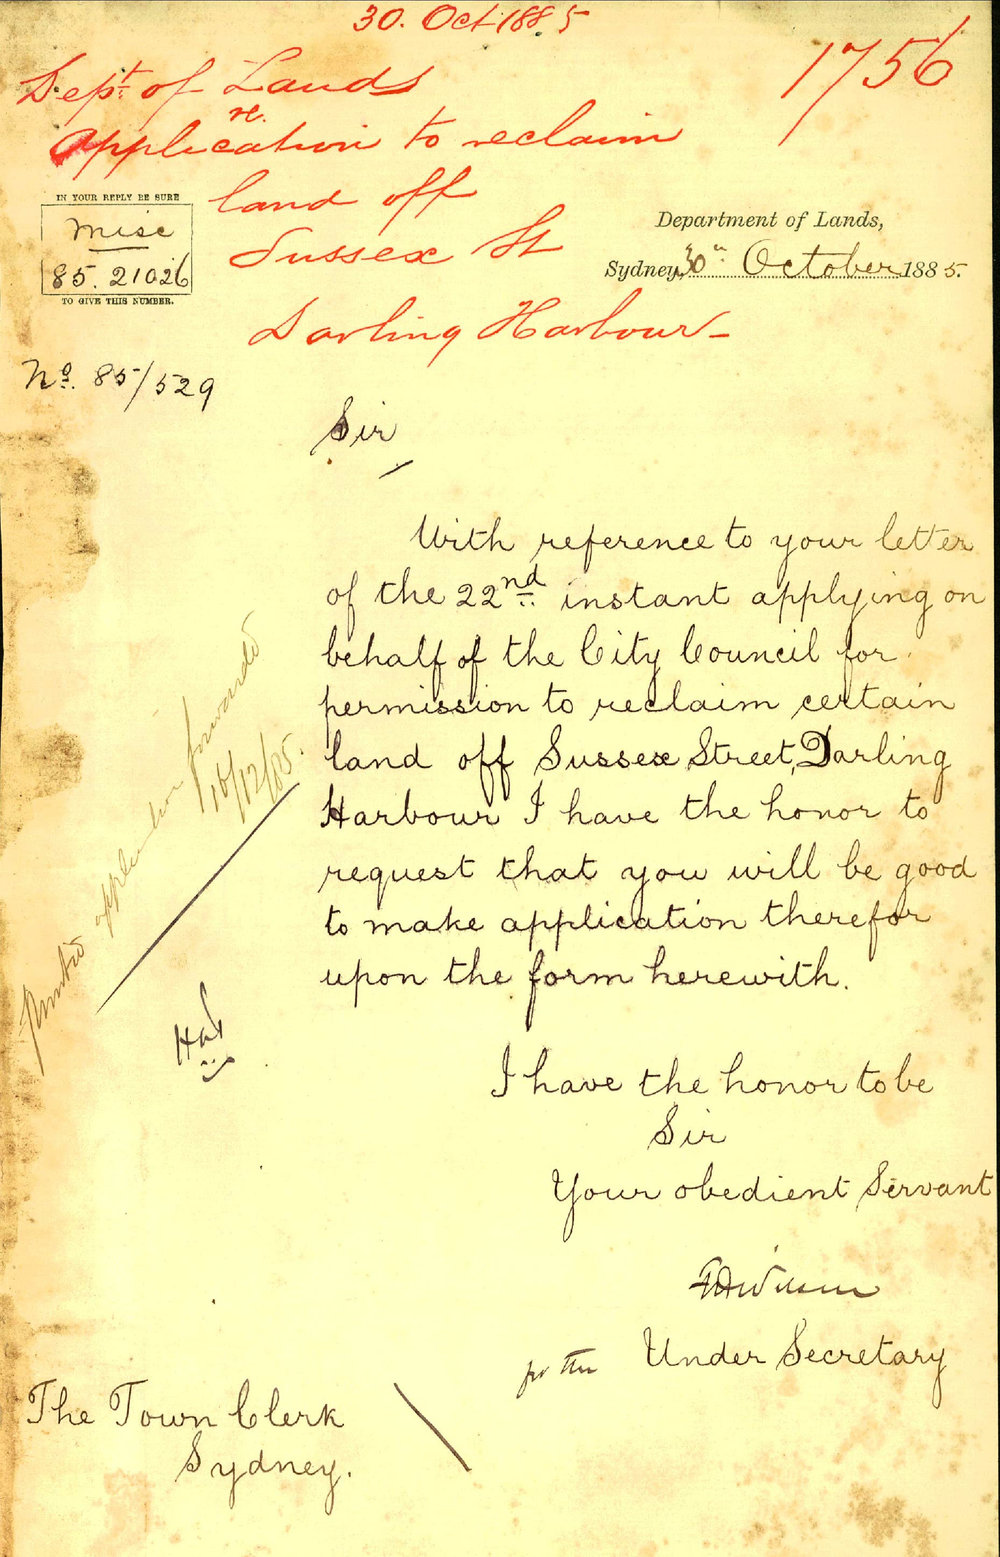 30. Oct 1885
1756
Dept. of Lands
re.
Application to reclaim
land off
Sussex St
Darling Harbour
IN YOUR REPLY BE SURE
Misc
85. 21026
TO GIVE THIS NUMBER.
Department of Lands,
Sydney, 30th October 1885.
No. 85/529
Sir
With reference to your letter
of the 22nd instant applying on
behalf of the City Council for
permission to reclaim certain
land off Sussex Street, Darling
Harbour I have the honor to
request that you will be good
to make application therefor
upon the form herewith.
application forwarded
16/12/85.
I have the honor to be
Sir
Your obedient Servant
for the Under Secretary
The Town Clerk
Sydney.